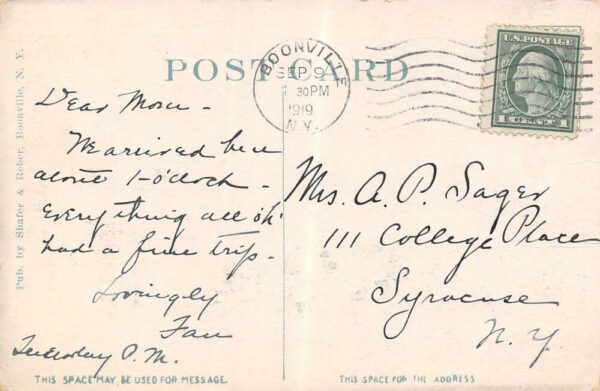 POST CARD
BOONVILLE
SEP 9
1 30PM
1919
N.Y.
U.S. POSTAGE
1 CENT 1
Dear Mom -
We arrived here
about 1-o'clock -
Everything all ok
had a fine trip.
Lovingly
Fan
Tuesday P.M.
Mrs. A. P. Sager
111 College Place
Syracuse
N. Y.
Pub. by Shafer & Reber, Boonville, N. Y.
THIS SPACE MAY BE USED FOR MESSAGE.
THIS SPACE FOR THE ADDRESS